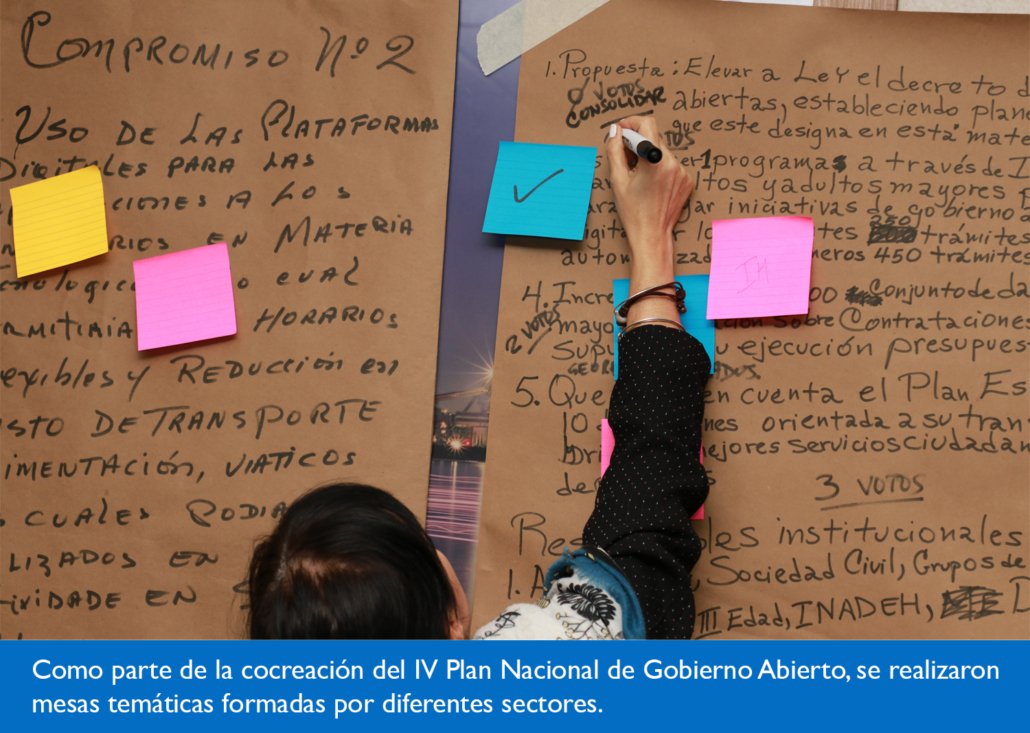 COMPROMISO Nº 2
USO DE LAS PLATAFORMAS
DIGITALES PARA LAS
CIONES A LOS
RIOS EN MATERIA
nológic o cual
RMITIRIA HORARIOS
exibles y REDUCCIÓN en
STO DE TRANSPORTE
IMENTACIÓN, VIATICOS
CUALES PODIA
LIZADOS EN
IVIDADE EN
1. Propuesta: Elevar a Ley el decreto d
0 VOTOS
CONSOLIDAR abiertas, estableciendo plan
que este designa en esta mate
er 1 programas a través de I
ltos y adultos mayores p
ara gar iniciativas de gobierno
igita r lo tes 250 trámites
autom izad meros 450 trámites
4. Incre 00 Conjunto de da
2 VOTOS
mayo ción sobre Contratacione
Supu u ejecución presupues
5. Que en cuenta el Plan Es
10 nes orientada a su tran
bri ejores servicios ciudadan
de
3 VOTOS
Res les institucionales
1. A , Sociedad Civil, Grupos de
III Edad, INADEH, D
Como parte de la cocreación del IV Plan Nacional de Gobierno Abierto, se realizaron
mesas temáticas formadas por diferentes sectores.